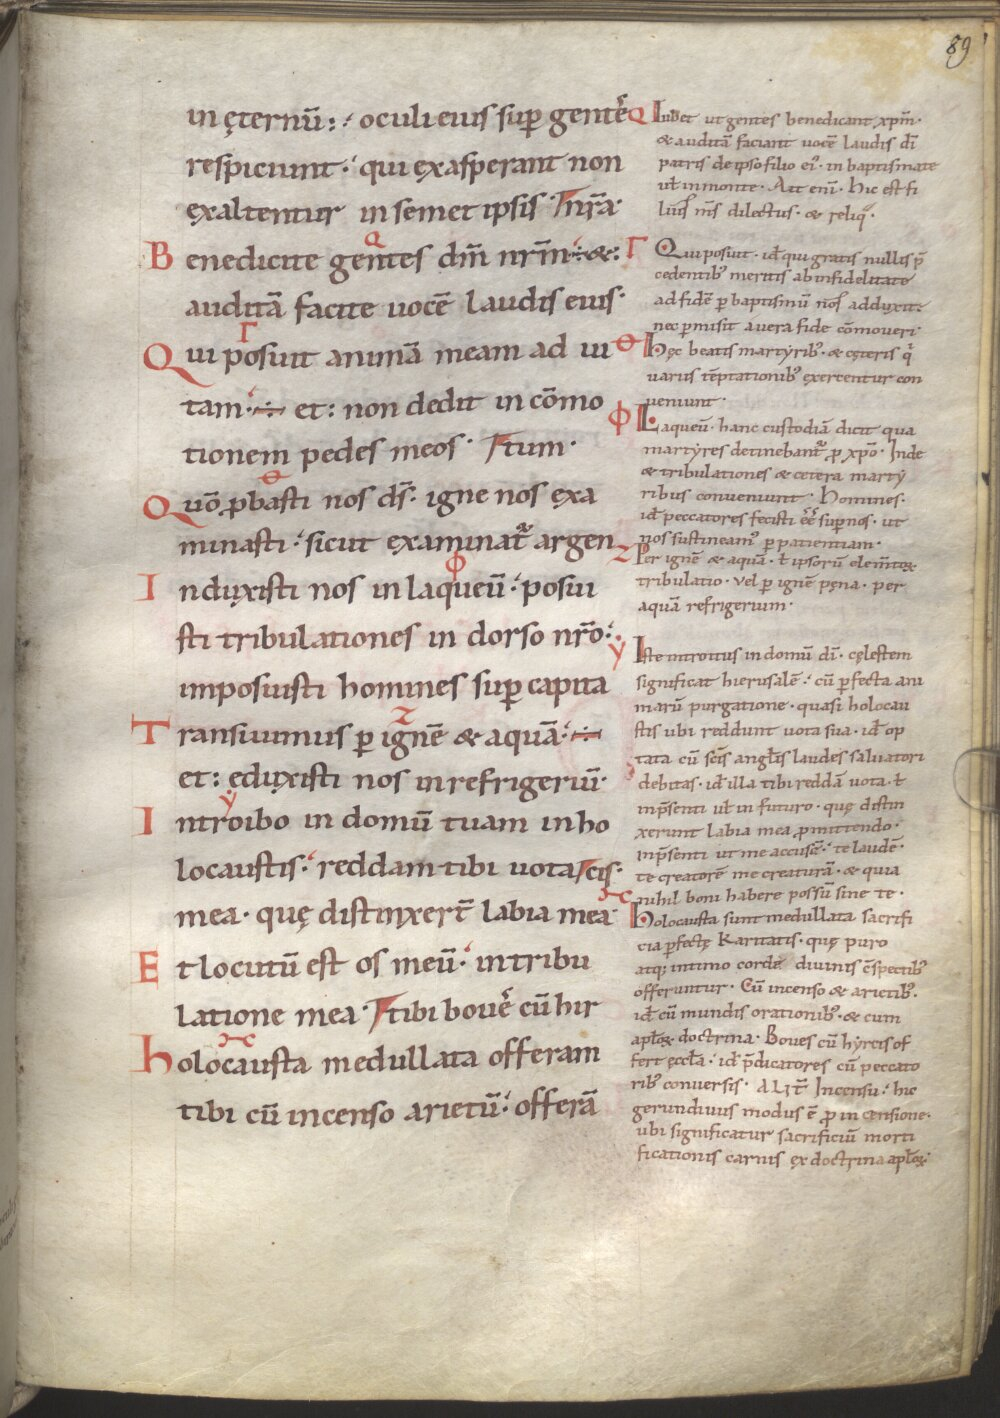 89
in ęternū: oculi eius sup gentes
respiciunt · qui exasperant non
exaltentur in semet ipsis · nr̄a·
Benedicite gentes dm̄ nrm̄ ÷ &:
auditā facite uocē laudis eius·
Qui posuit animā meam ad ui
tam · ÷ et: non dedit in cōmo
tionem pedes meos · tum ·
Quō pbasti nos ds̄ · igne nos exa
minasti · sicut examinat argen
Induxisti nos in laqueū · posui
sti tribulationes in dorso nr̄o ·
imposuisti homines sup capita
Transiuimus p ignē & aquā · ÷
et: ęduxisti nos in refrigeriū·
Introibo in domū tuam in ho
locaustis · reddam tibi uota cis·
mea · quę distinxert̄ labia mea
Et locutū est os meū · in tribu
latione mea · tibi boues cū hir
holocausta medullata offeram
tibi cū incenso arietū · offerā
Q Iubet ut gentes benedicant xpm̄·
& auditā faciant uocē laudis dī
patris de ipso filio ei · in baptismate
ut in monte · Ait eni · hic est fi
lius ms̄ dilectus · & reliq·
Γ Qui posuit · id qui gratis nullis p̄
cedentib meritis ab infidelitate
ad fidē p baptismū nos adduxit·
nec pmisit a uera fide cōmoueri·
Θ hęc beatis martyrib · & cęteris q
uariis tēptationib exercentur con
ueniunt ·
Φ Laqueū · hanc custodiā dicit qua
martyres detinebant p xpō · Inde
& tribulationes & cetera marty
ribus conueniunt · homines ·
id peccatores fecisti ēē sup nos · ut
nos sustineam p patientiam ·
Z Per ignē & aquā · ipsorū elemtoꝝ
tribulatio · vel p ignē pęna · per
aquā refrigerium ·
y Iste introitus in domū dī · cęlestem
significat hierusalē · cū pfecta ani
marū purgatione · quasi holocau
stis ubi reddunt uota sua · id op
tata cū scīs angelis laudes saluatori
debitas · id illa tibi reddā uota · ł
inp̄senti ut in futuro · quę distin
xerunt labia mea pmittendo ·
inp̄senti ut me accusē · te laudē ·
te creatorē me creaturā · & quia
nihil boni habere possū sine te ·
holocausta sunt medullata sacrifi
cia pfectę karitatis · quę puro
atq; intimo corde diuinis c̄spectib
offeruntur · Cū incenso & arietib·
id cū mundis orationib · & cum
aploꝝ doctrina · Boues cū hyrcis of
fert ęccła · id p̄dicatores cū peccato
rib conuersis · ALIT Incensu · hic
gerundiuus modus ē p incensione ·
ubi significatur sacrificiū morti
ficationis carnis ex doctrina aploꝝ